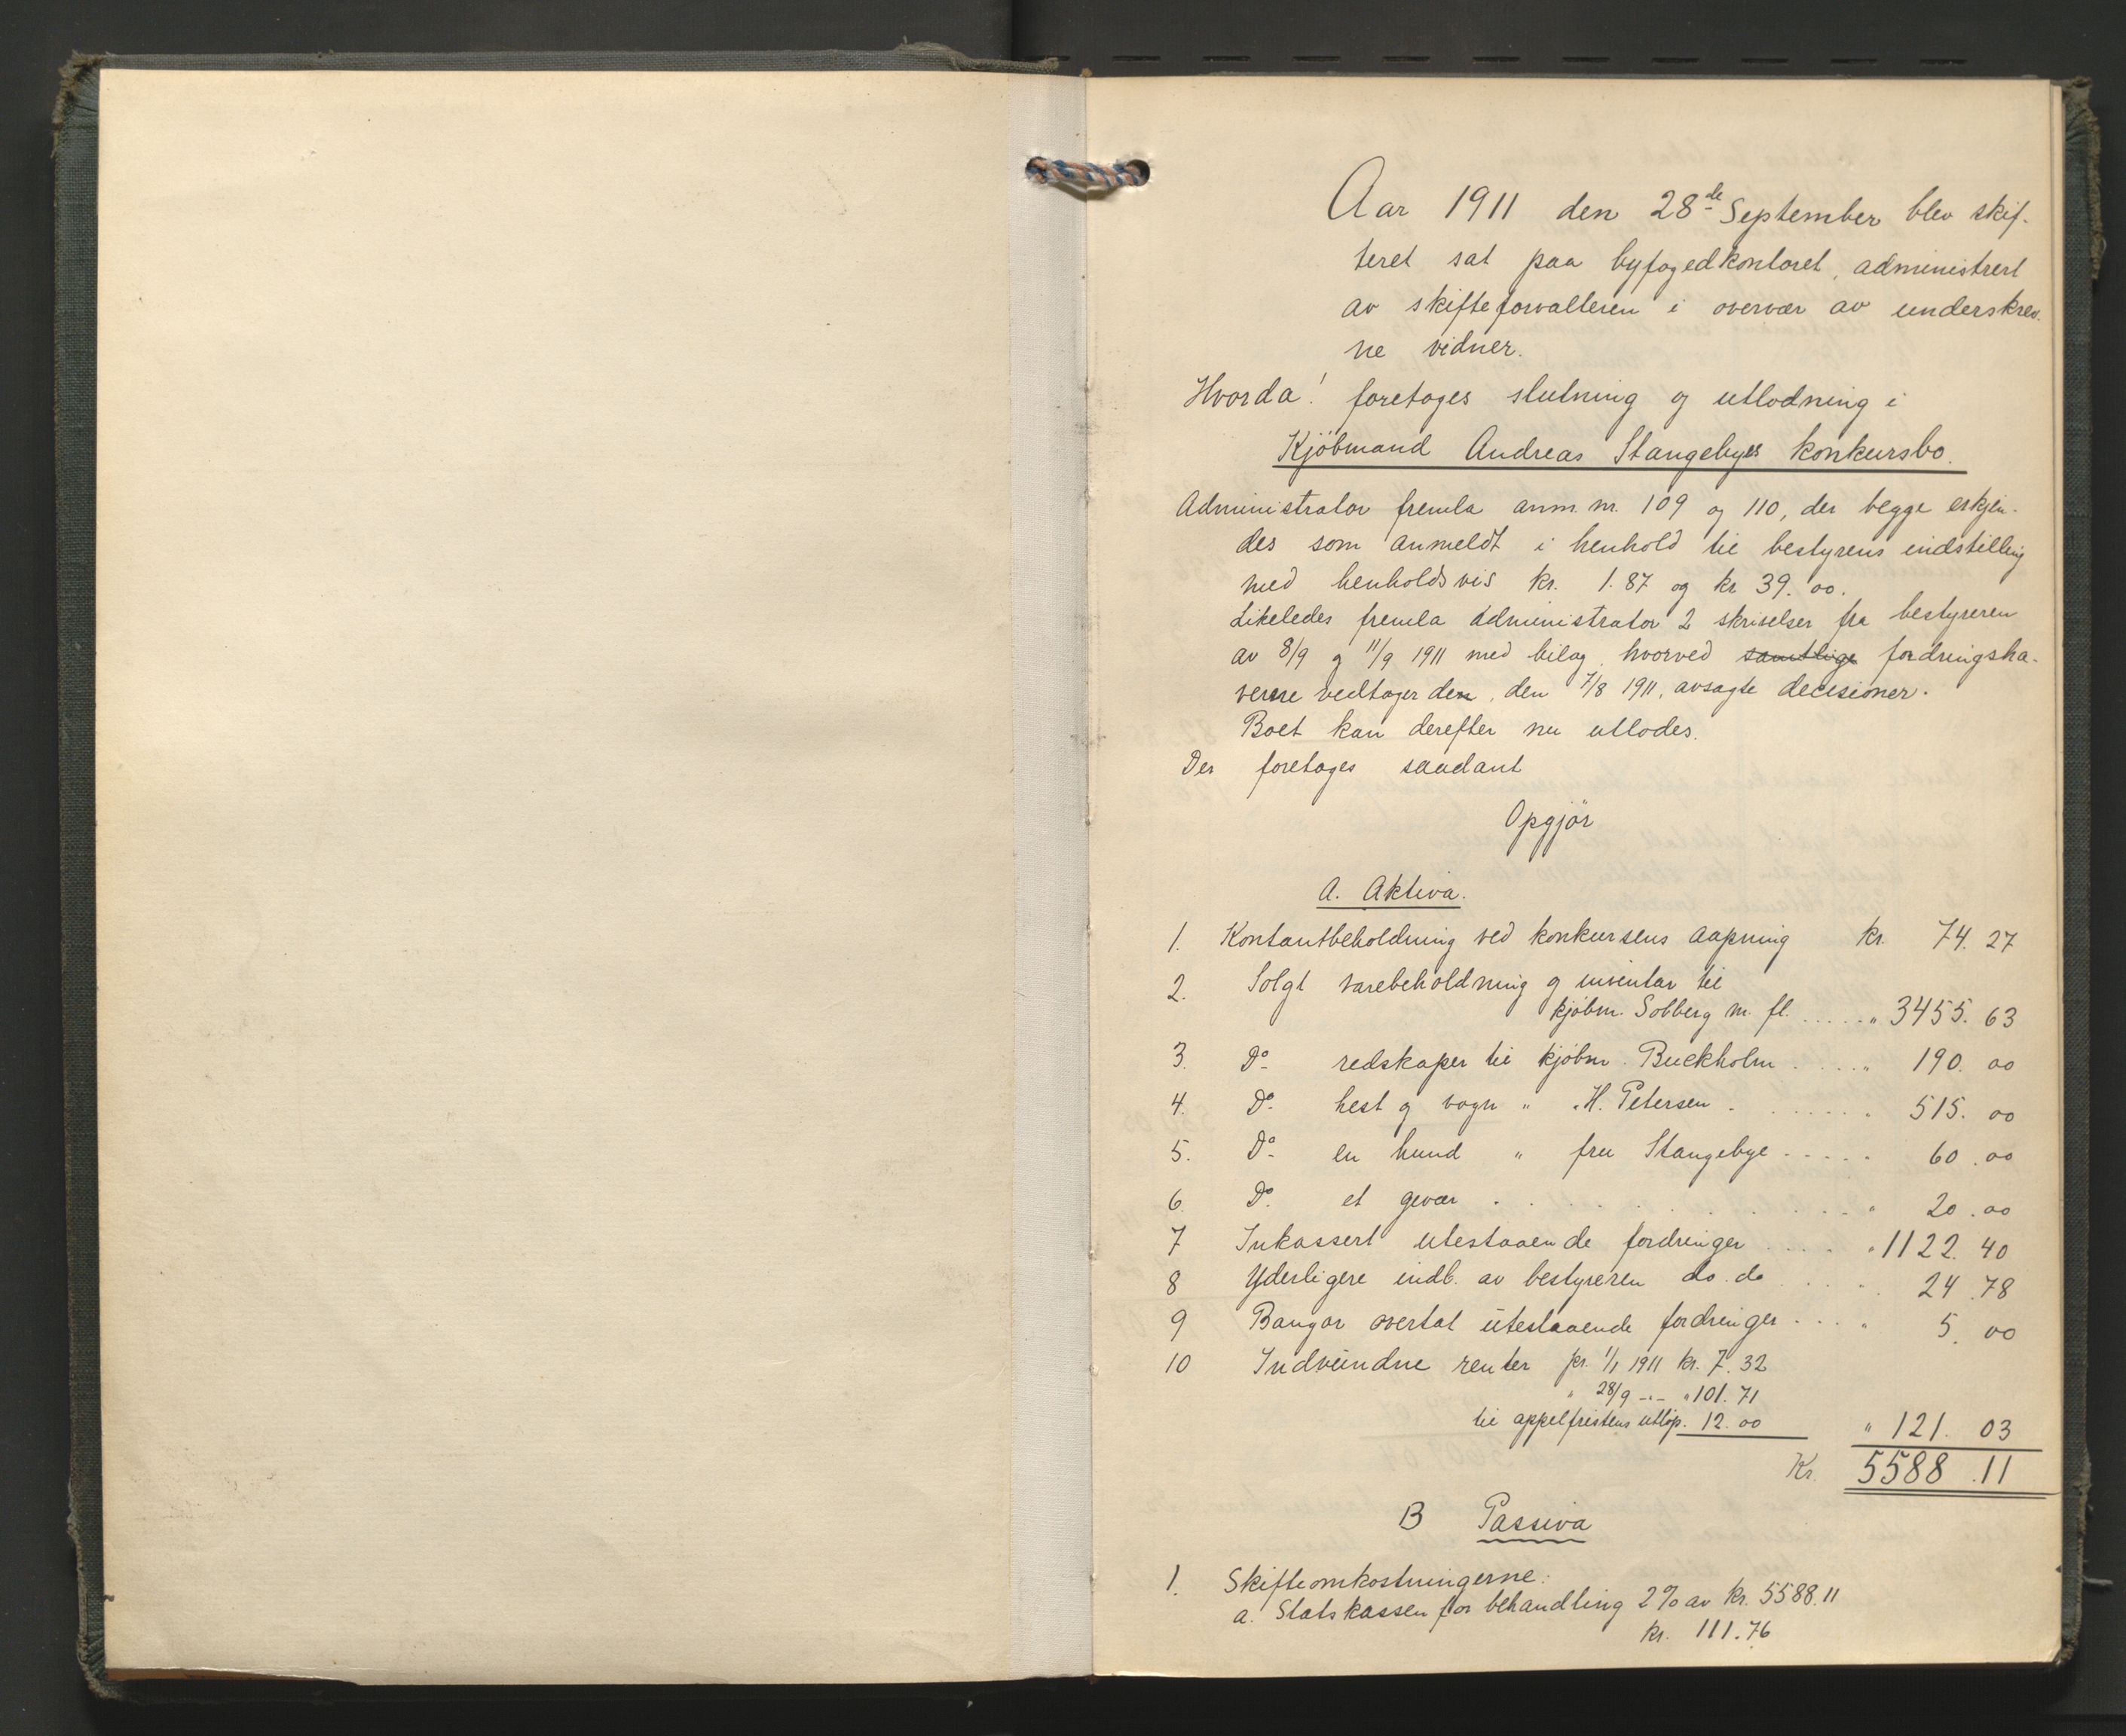 Aar 1911 den 28de September blev skif-
teret sat paa byfogedkontoret, administrert
av skifteforvalteren i overvær av underskrev-
ne vidner.
Hvorda! foretoges slutning og utlodning i
Kjöbmand Andreas Stangebyes konkursbo.
Administrator fremla anm. nr. 109 og 110, der begge erkjen-
des som anmeldt i henhold til bestyrens indstilling
med henholdsvis kr. 1.87 og kr 39.00.
Likeledes fremla administrator 2 skrivelser fra bestyreren
av 8/9 og 11/9 1911 med bilag, hvorved samtlige fordringsha-
verne vedtager den, den 7/8 1911, avsagte decisioner.
Boet kan derefter nu utlodes.
Der foretoges saadant
Opgjör
A. Aktiva.
1. Kontantbeholdning ved konkursens aapning kr. 74.27
2. Solgt varebeholdning og inventar til
kjöbm. Solberg m. fl. ..... " 3455.63
3. Do redskaper til kjöbm. Buckholm ..... " 190.00
4. Do hest og vogn " " H. Petersen ....... 515.00
5. Do en hund " fru Stangebye ..... 60.00
6. Do et gevær ......... " 20.00
7 Inkassert utestaaende fordringer .... " 1122.40
8 Yderligere indb. av bestyreren do. do .... 24.78
9 Bangor overtat utestaaende fordringer .... " 5.00
10 Indvundne renter pr. 1/1 1911 kr. 7.32
" 28/9 -"- " 101.71
til appelfristens utlöp. 12.00 " 121.03
Kr. 5588.11
B Passiva
1. Skifteomkostningerne:
a. Statskassen for behandling 2% av kr. 5588.11
kr. 111.76